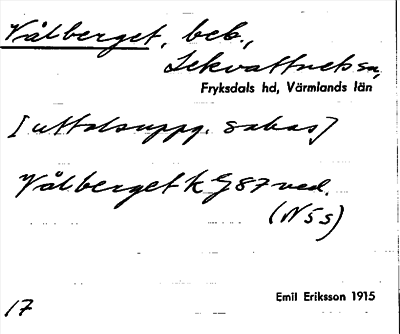 Vålberget, beb.,
Lekvattnets sn,
Fryksdals hd, Värmlands län
[uttalsuppg. saknas]
Vålberget k G 87 ved.
(N5s)
Emil Eriksson 1915
17